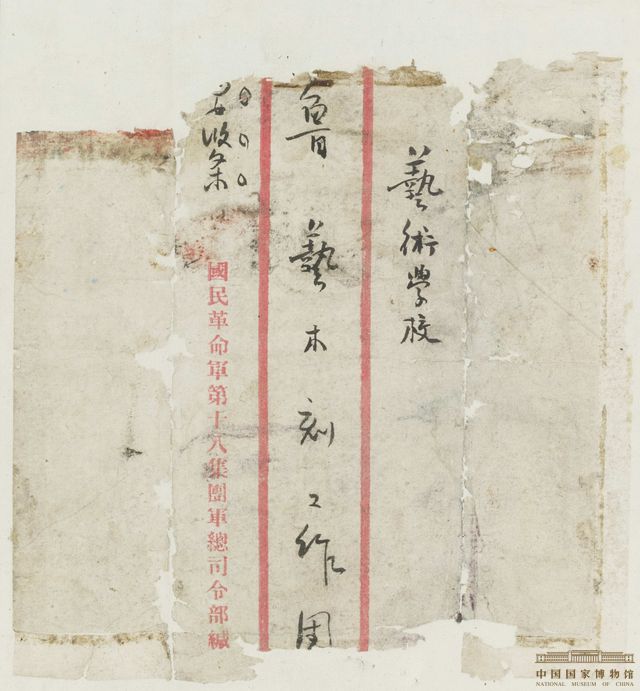 藝術學校
魯藝木刻工作团
收条
國民革命軍第十八集團軍總司令部緘
中国国家博物馆
NATIONAL MUSEUM OF CHINA